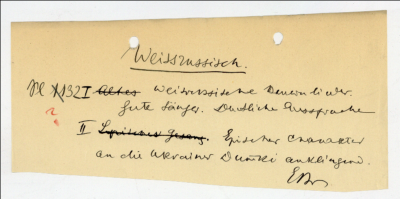 Weissrussisch.
Pl X132 I ~~Altes~~ Weissrussische Bauernlieder.
Gute Sänger. Deutliche Aussprache
II ~~Lyrischer Gesang.~~ Epischer Charakter
an die Ukrainer Dumki anklingend.